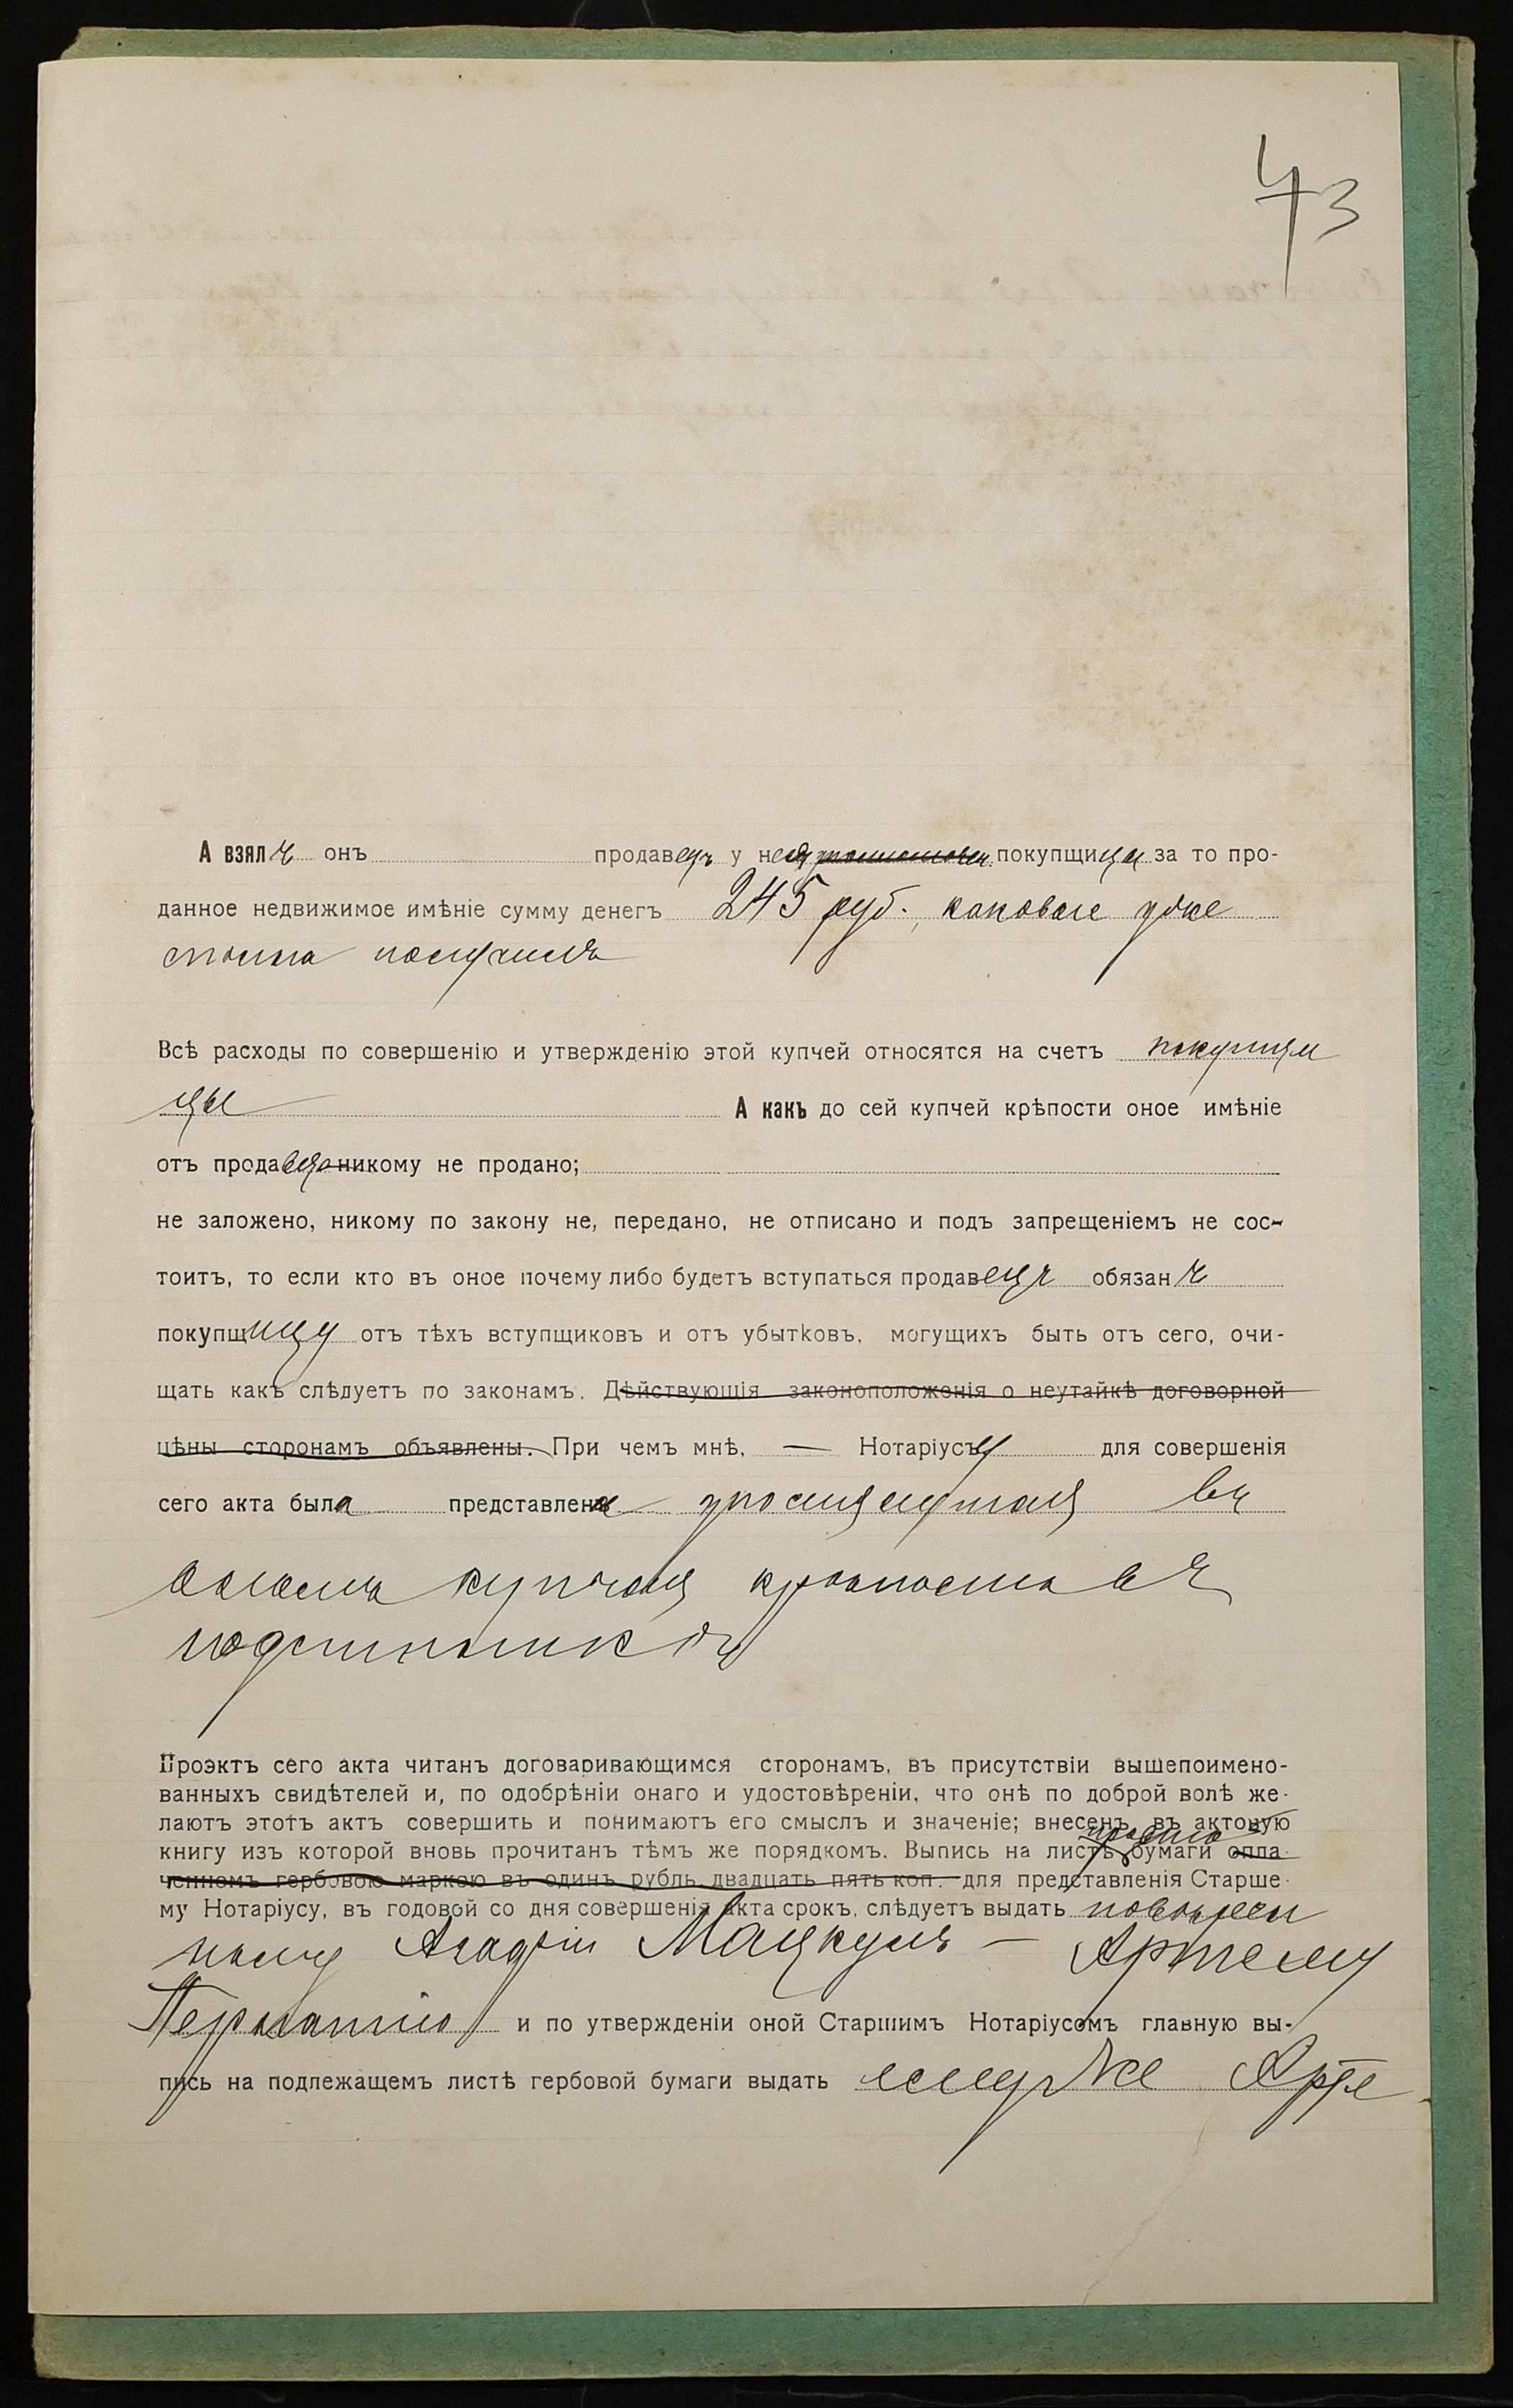 43
А взялъ онъ продавецъ у нея покупщицы за то про-
данное недвижимое имѣніе сумму денегъ 245 руб., каковые уже
сполна получилъ
Всѣ расходы по совершенію и утвержденію этой купчей относятся на счетъ покупщи
цы А какъ до сей купчей крѣпости оное имѣніе
отъ продавца никому не продано;
не заложено, никому по закону не, передано, не отписано и подъ запрещеніемъ не сос-
тоитъ, то если кто въ оное почему либо будетъ вступаться продавецъ обязанъ
покупщицу отъ тѣхъ вступщиковъ и отъ убытковъ, могущихъ быть отъ сего, очи-
щать какъ слѣдуетъ по законамъ. Дѣйствующія законоположенія о неутайкѣ договорной
цѣны сторонамъ объявлены. При чемъ мнѣ, — Нотаріусу для совершенія
сего акта была представлена
купчая крѣпость въ
подлинникѣ
Проэктъ сего акта читанъ договаривающимся сторонамъ, въ присутствіи вышепоимено-
ванныхъ свидѣтелей и, по одобрѣніи онаго и удостовѣреніи, что онѣ по доброй волѣ же-
лаютъ этотъ актъ совершить и понимаютъ его смыслъ и значеніе; внесенъ въ актовую
книгу изъ которой вновь прочитанъ тѣмъ же порядкомъ. Выпись на листѣ простой бумаги опла-
ченномъ гербовою маркою въ одинъ рубль двадцать пять коп. для представленія Старше-
му Нотаріусу, въ годовой со дня совершенія акта срокъ, слѣдуетъ выдать повѣрен
ному Мацкулъ — Артему
и по утвержденіи оной Старшимъ Нотаріусомъ главную вы-
пись на подлежащемъ листѣ гербовой бумаги выдать ему же Арте